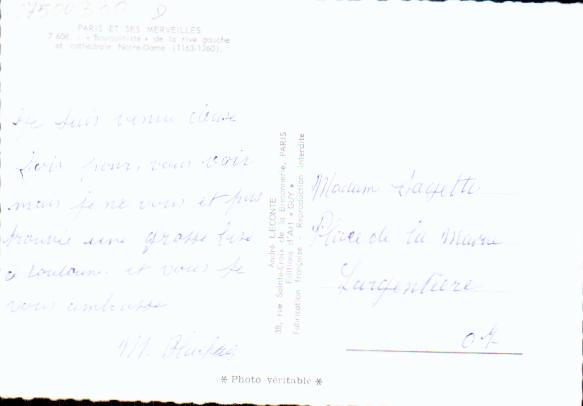 7500300 D
PARIS ET SES MERVEILLES
7 608 - « Bouquiniste » de la rive gauche
et cathédrale Notre-Dame (1163-1260).
Je suis venue deuse
fois pour, vous voir
mais je ne vous et pas
trouvée une grosse bise
a Louloune et vous je
vous ambrasse
M.
André LECONTE
38, rue Sainte-Croix de la Bretonnerie, PARIS
Editions d'Art « GUY »
Fabrication française - Reproduction interdite
Madam
Place de la Mairie
Largentière
07
* Photo véritable *